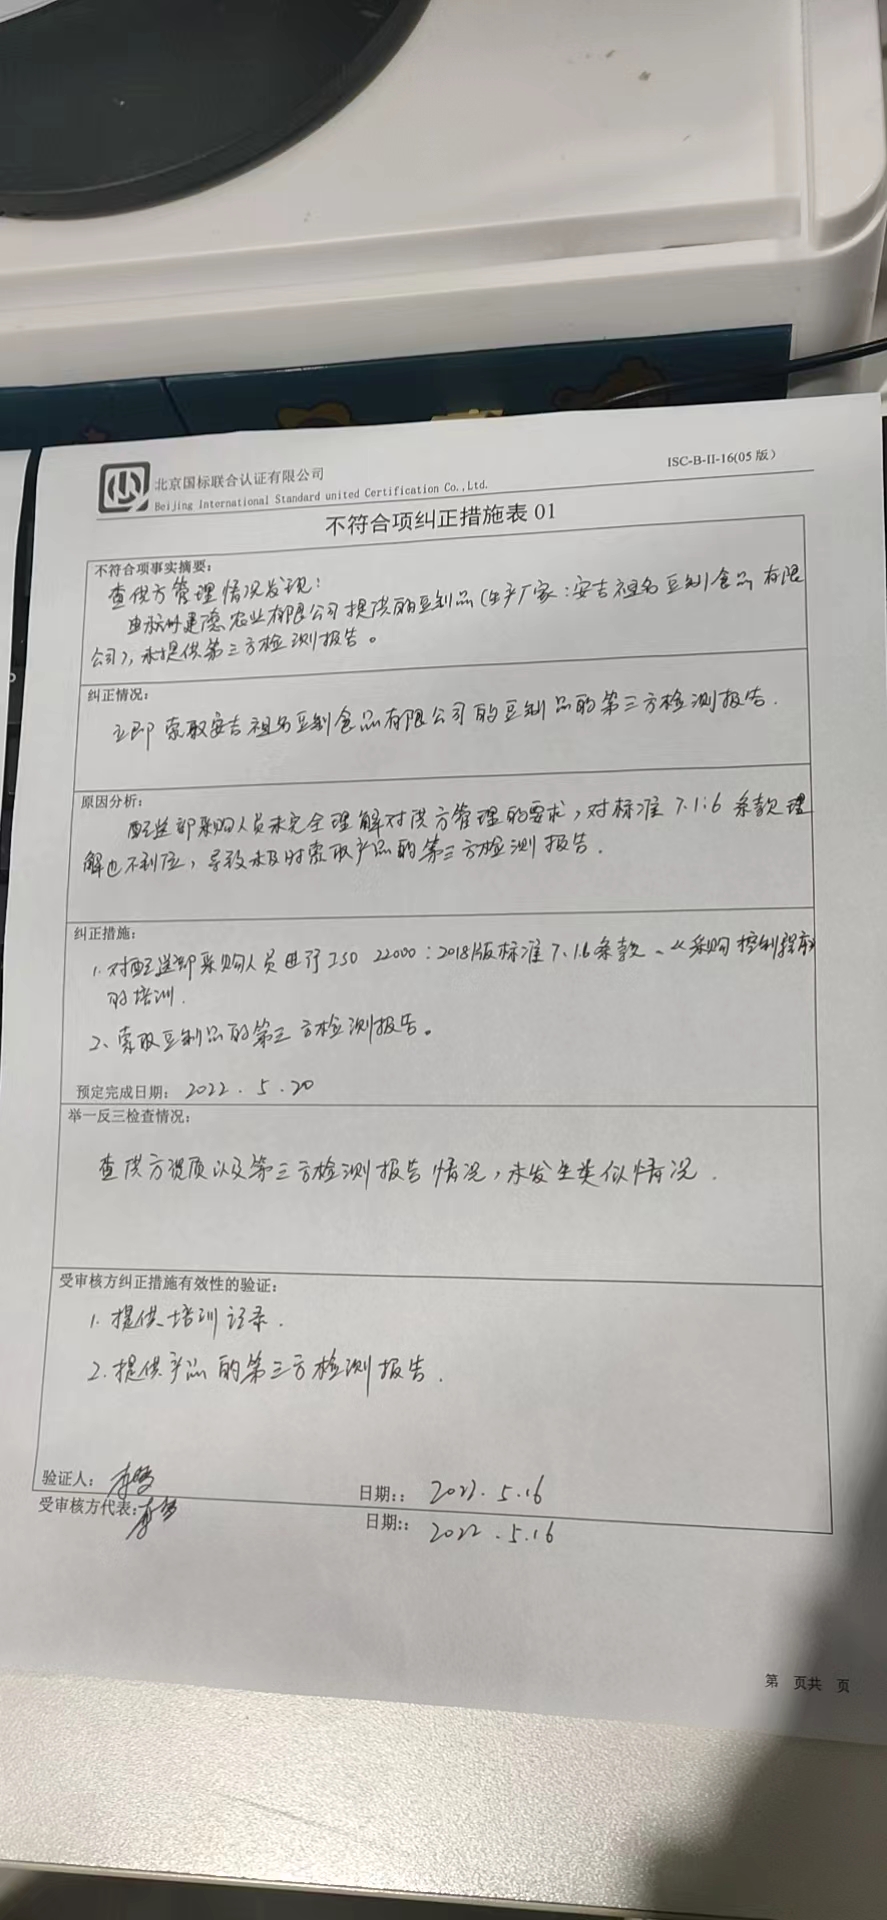 北京国标联合认证有限公司
Beijing International Standard united Certification Co.,Ltd.
ISC-B-II-16(05 版)
不符合项纠正措施表 01
不符合项事实摘要:
查供方管理情况发现:
由杭州建德农业有限公司提供的豆制品(生产厂家:安吉祖名豆制食品有限
公司),未提供第三方检测报告。
纠正情况:
立即索取安吉祖名豆制食品有限公司的豆制品的第三方检测报告.
原因分析:
配送部采购人员未完全理解对供方管理的要求,对标准 7.1.6 条款理
解也不到位,导致未及时索取产品的第三方检测报告.
纠正措施:
1. 对配送部采购人员进行 ISO 22000:2018版标准 7.1.6条款、《采购控制程序》
的培训.
2、索取豆制品的第三方检测报告。
预定完成日期: 2022.5.20
举一反三检查情况:
查供方资质以及第三方检测报告情况,未发生类似情况.
受审核方纠正措施有效性的验证:
1. 提供培训记录.
2. 提供产品的第三方检测报告.
验证人:
日期:: 2022.5.16
受审核方代表:
日期:: 2022.5.16
第 页共 页